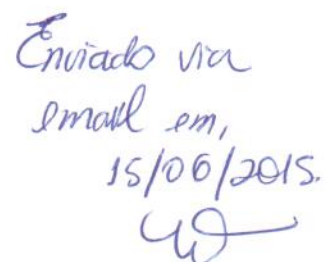 Enviado via
email em,
15/06/2015.